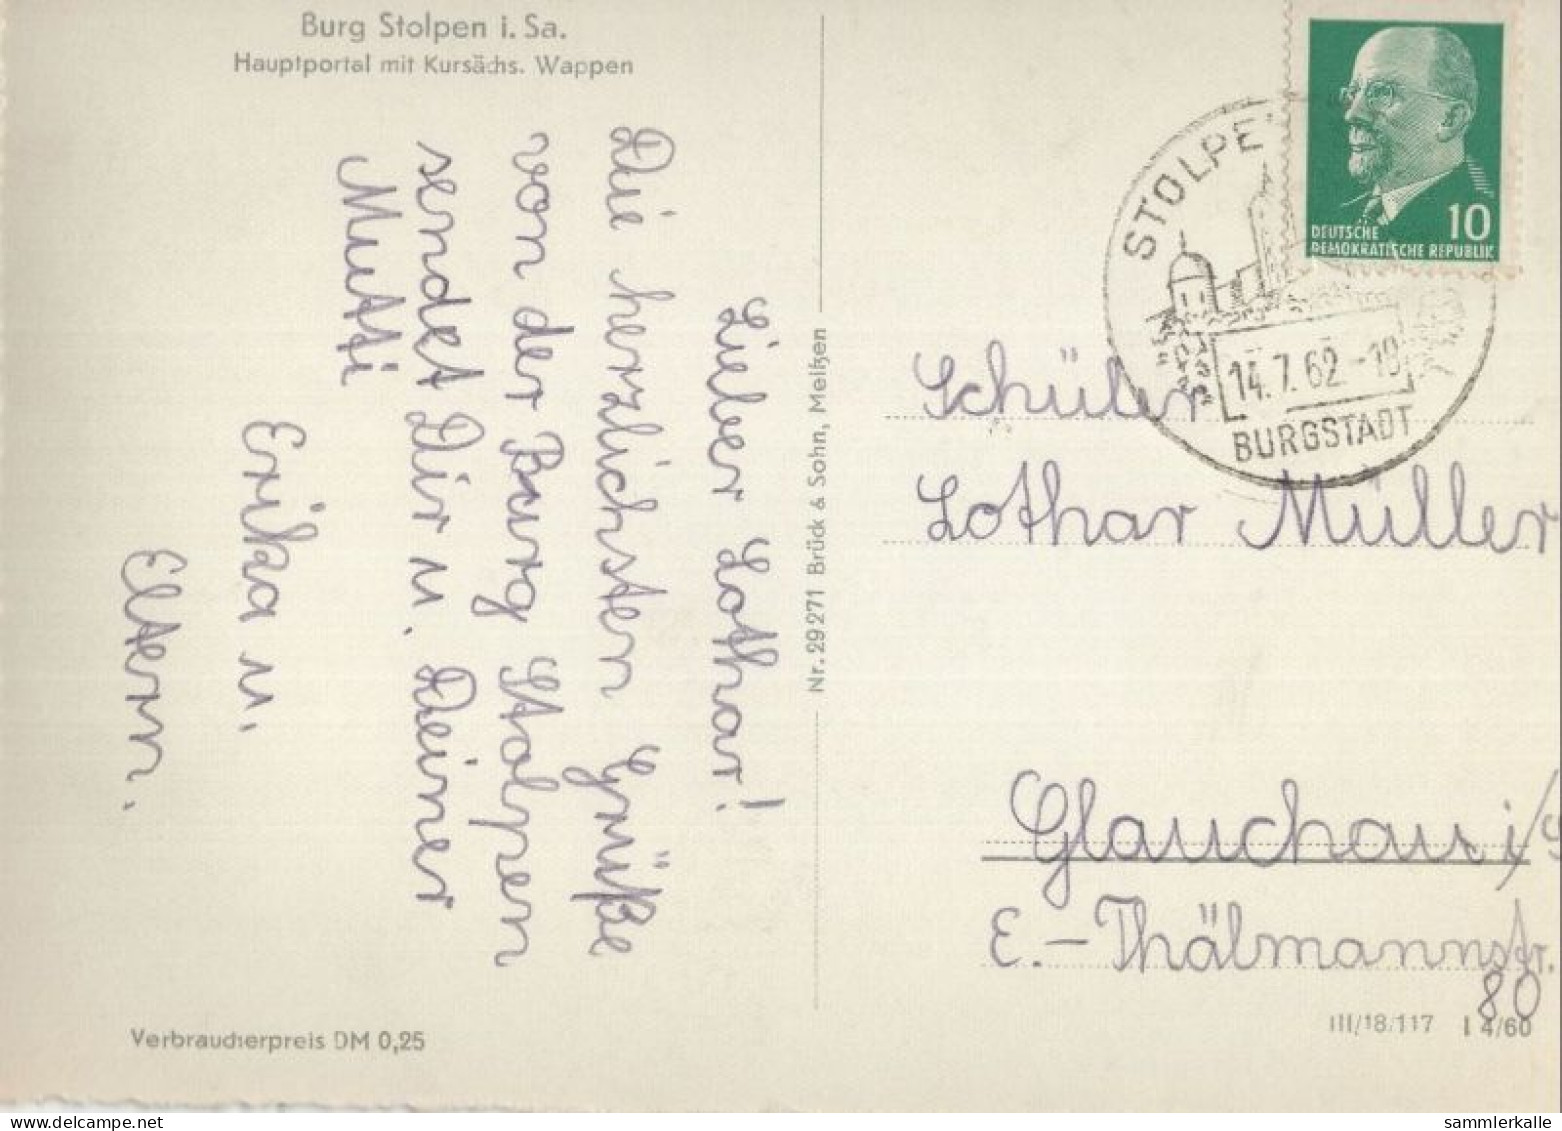 Burg Stolpen i. Sa.
Hauptportal mit Kursächs. Wappen
Lieber Lothar!
Die herzlichsten Grüße
von der Burg Stolpen
sendet Dir u. Deiner
Mutti
Erika u.
Eltern.
Verbraucherpreis DM 0,25
Nr. 29271 Brück & Sohn, Meißen
10
DEUTSCHE
DEMOKRATISCHE REPUBLIK
STOLPE
14.7.62.-18
BURGSTADT
Schüler
Lothar Müller
Glauchau i/S
E.-Thälmannstr.
80
III/18/117 I 4/60
sammlerkalle